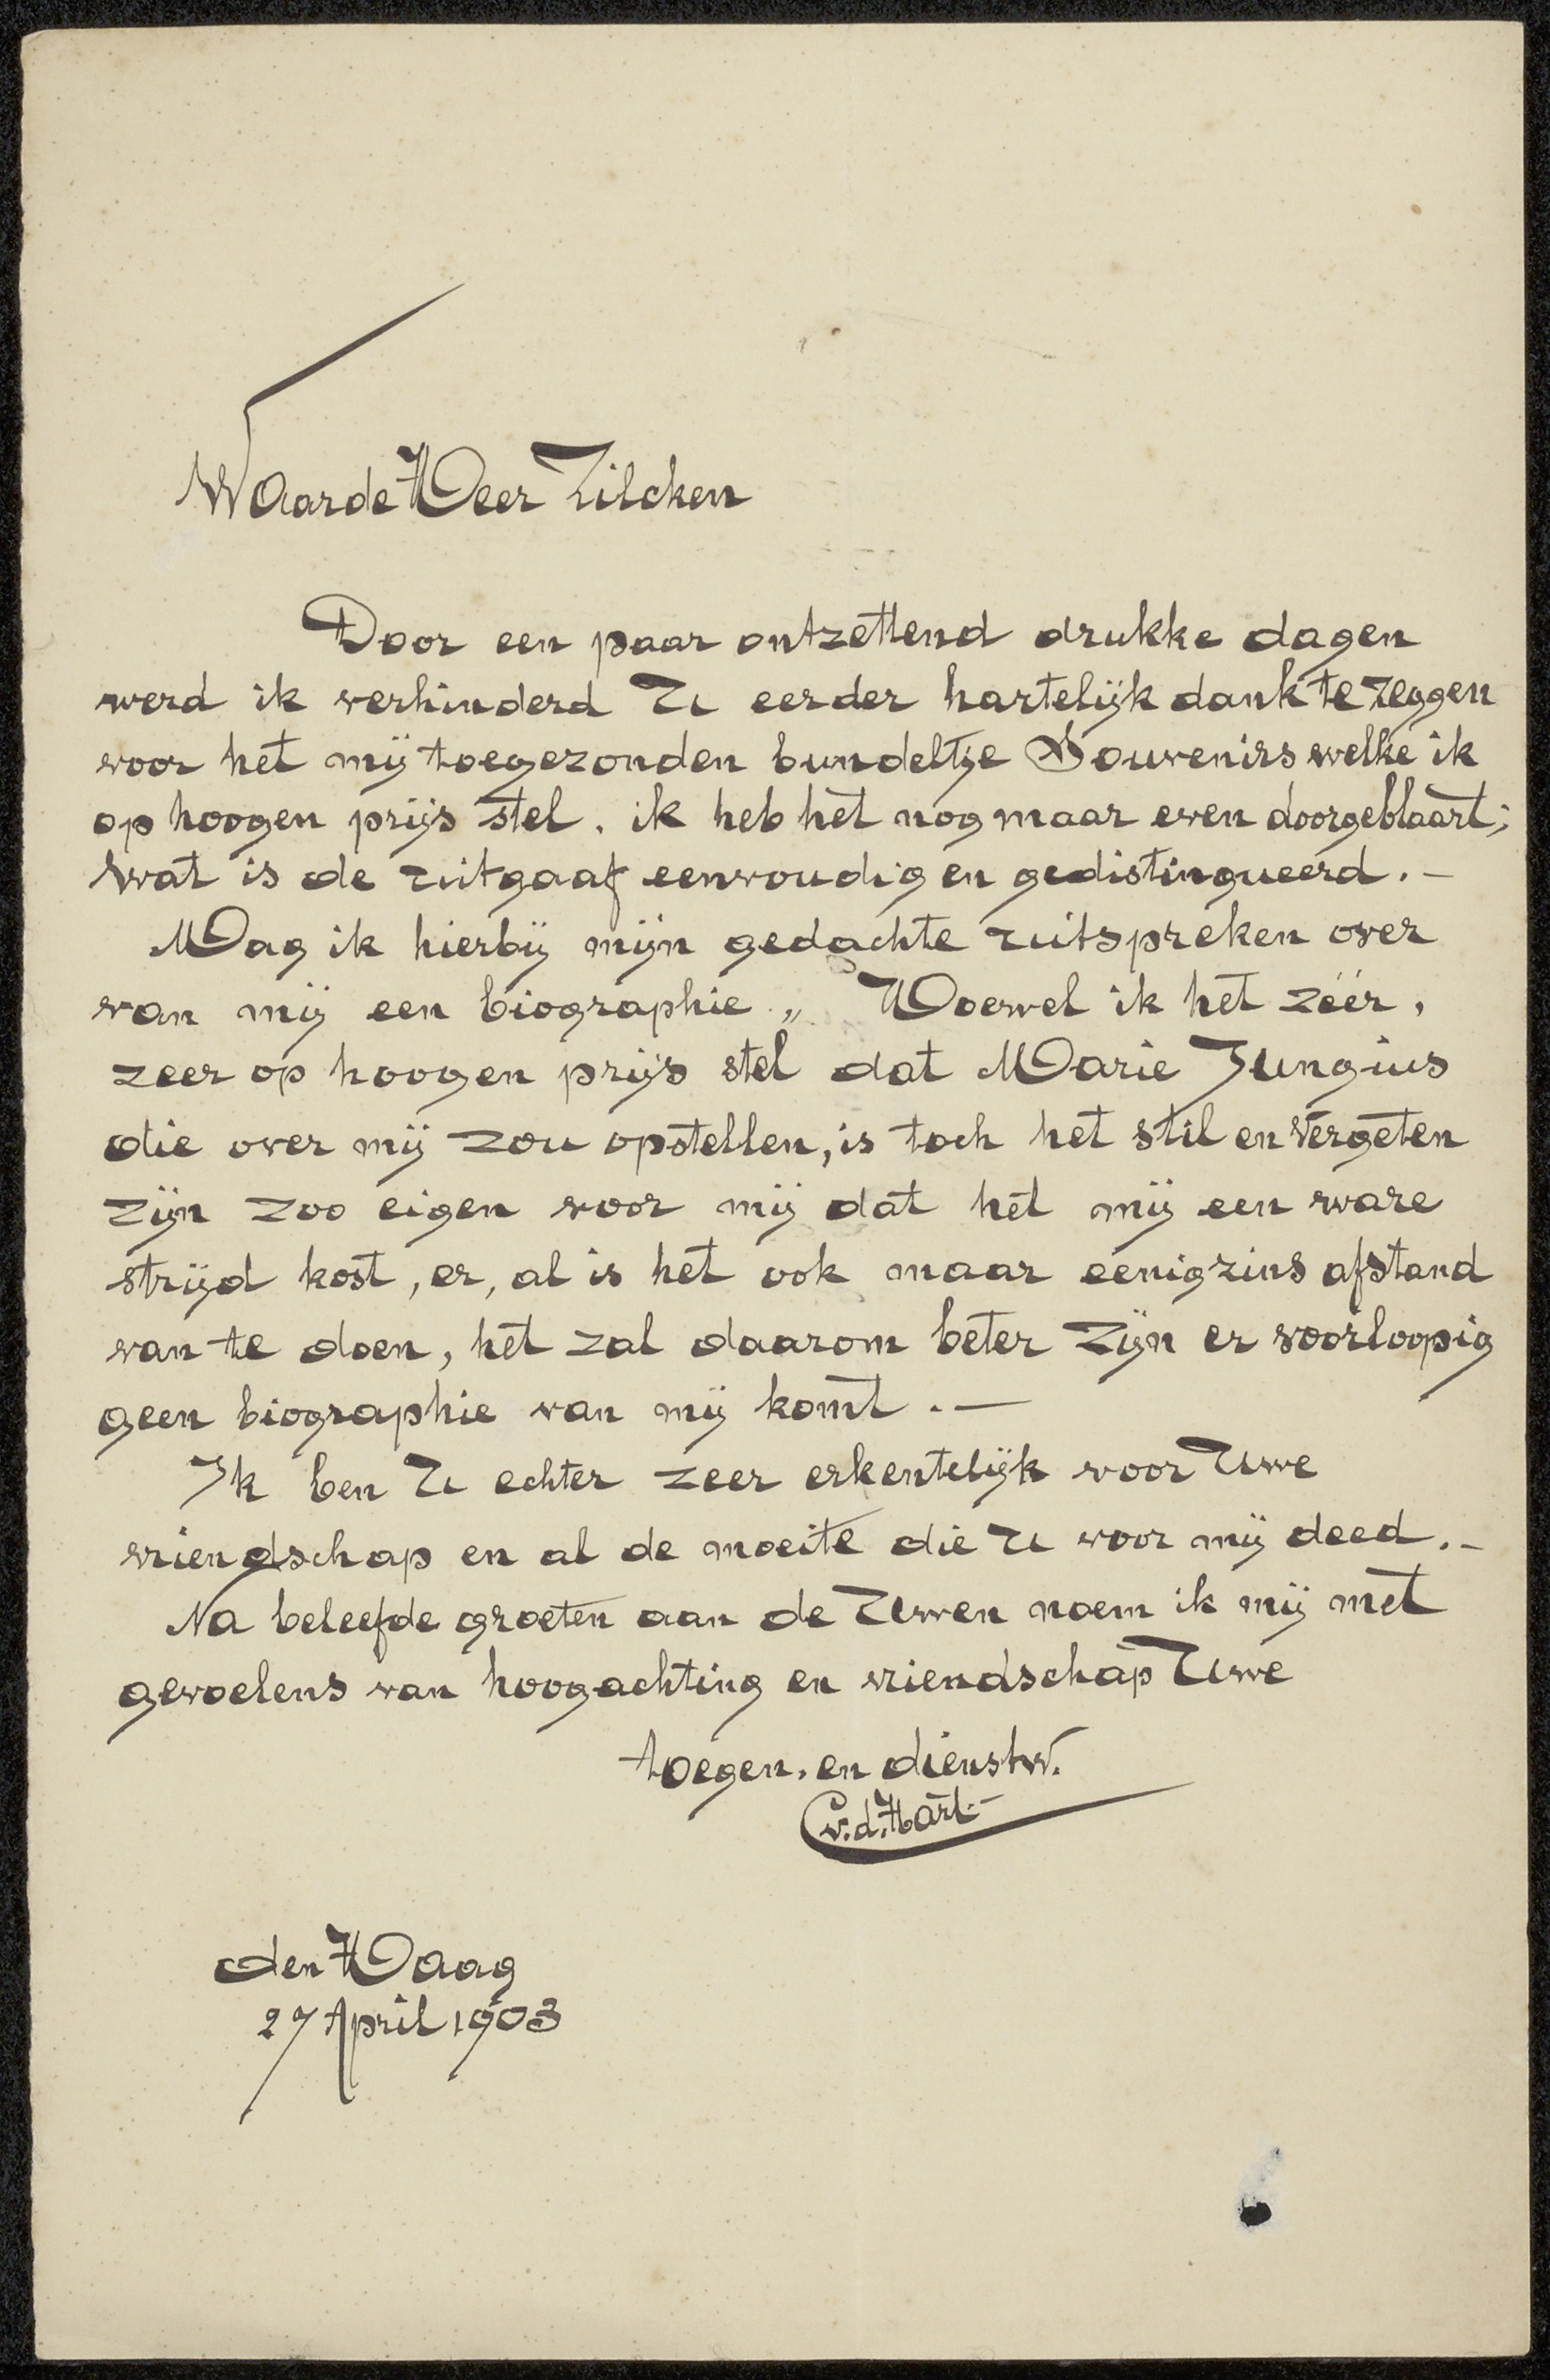 Waarde Heer Zilcken
Door een paar ontzettend drukke dagen
werd ik verhinderd U eerder hartelijk dank te zeggen
voor het mij toegezonden bundeltje Souvenirs welke ik
op hoogen prijs stel. ik heb het nog maar even doorgeblaart;
wat is de uitgaaf eenvoudig en gedistingueerd. -
Mag ik hierbij mijn gedachte uitspreken over
van mij een biographie „ Hoewel ik het zéér,
zeer op hoogen prijs stel dat Marie Jungius
die over mij zou opstellen, is toch het stil en vergeten
zijn zoo eigen voor mij dat het mij een ware
strijd kost, er, al is het ook maar eenigzins afstand
van te doen, het zal daarom beter zijn er voorloopig
geen biographie van mij komt. —
Ik ben U echter zeer erkentelijk voor Uwe
vriendschap en al de moeite die U voor mij deed. -
Na beleefde groeten aan de Uwen noem ik mij met
gevoelens van hoogachting en vriendschap Uwe
toegen. en dienstw.
C v. d. Hart. -
den Haag
27 April 1903